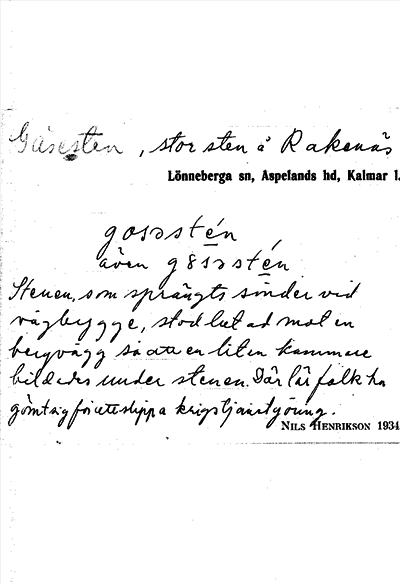 Gåsesten, stor sten å Rakenäs
Lönneberga sn, Aspelands hd, Kalmar l.
gosəstén
även gɞsəstén
Stenen, som sprängts sönder vid
vägbygge, stod lutad mot en
bergvägg så att en liten kammare
bildades under stenen. Där lär folk ha
gömt sig för att slippa krigstjänstgöring.
NILS HENRIKSON 1934